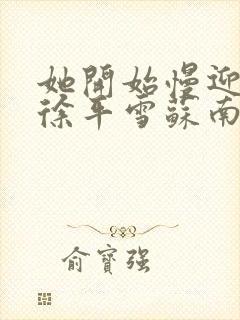 她開始慢迎
徐平雪蘇南
俞寶强